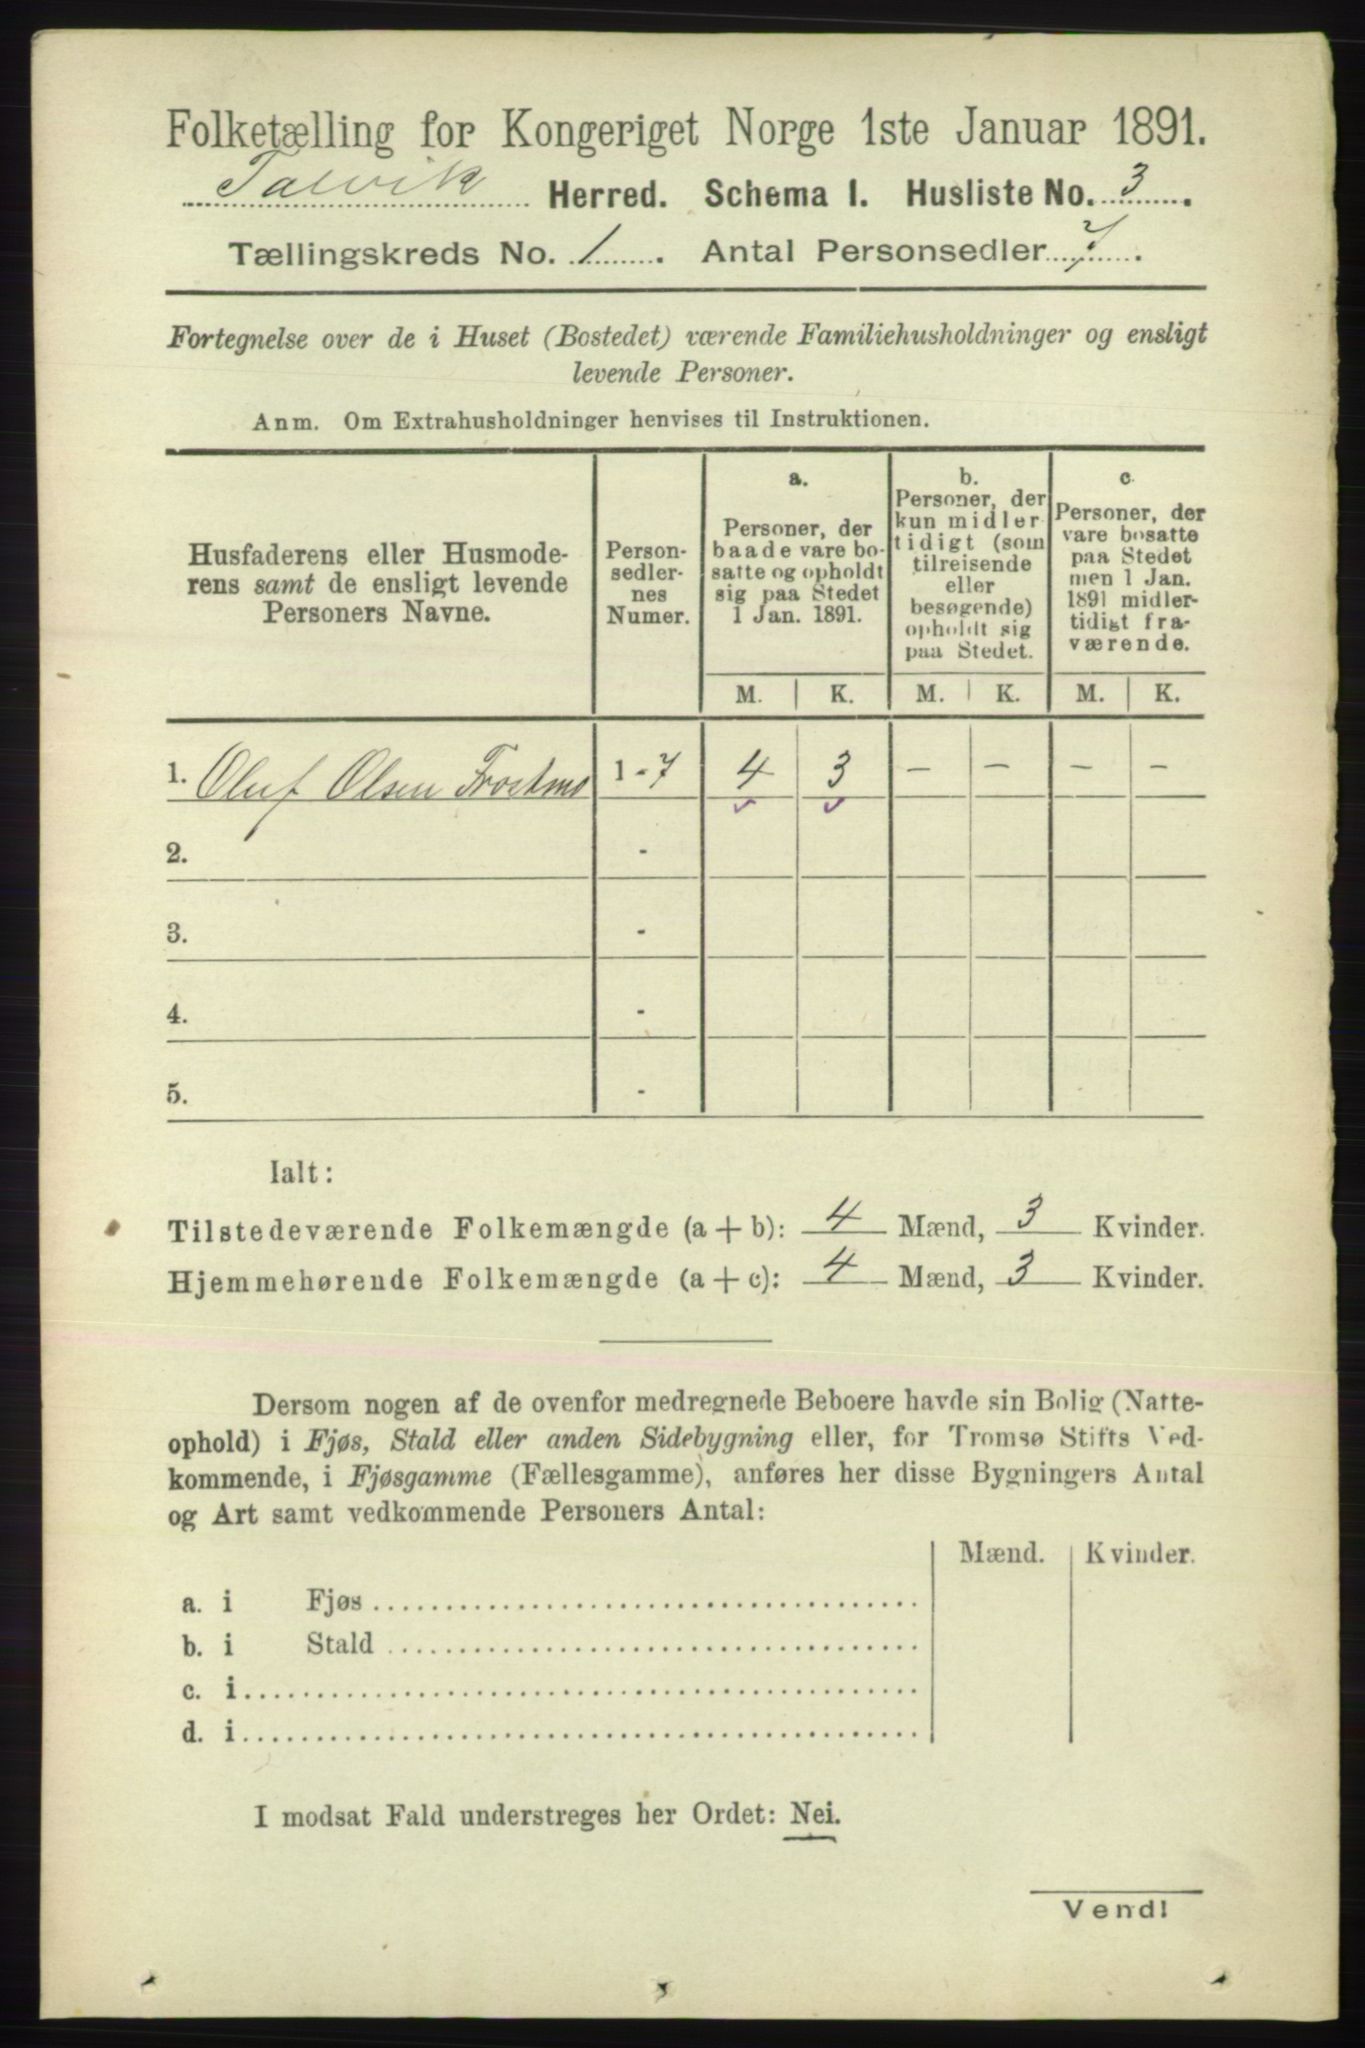 Folketælling for Kongeriget Norge 1ste Januar 1891.
Talvik Herred. Schema I. Husliste No. 3.
Tællingskreds No. 1. Antal Personsedler 7.
Fortegnelse over de i Huset (Bostedet) værende Familiehusholdninger og ensligt
levende Personer.
Anm. Om Extrahusholdninger henvises til Instruktionen.
Husfaderens eller Husmode-
rens samt de ensligt levende
Personers Navne.
Person-
sedler-
nes
Numer.
a.
Personer, der
baade vare bo-
satte og opholdt
sig paa Stedet
1 Jan. 1891.
b.
Personer, der
kun midler-
tidigt (som
tilreisende
eller
besøgende)
opholdt sig
paa Stedet.
c.
Personer, der
vare bosatte
paa Stedet
men 1 Jan.
1891 midler-
tidigt fra-
værende.
M. K. M. K. M. K.
1. Oluf Olsen Frostmo 1-7 4 3 - - - -
2. -
3. -
4. -
5. -
Ialt:
Tilstedeværende Folkemængde (a + b): 4 Mænd, 3 Kvinder.
Hjemmehørende Folkemængde (a + c): 4 Mænd, 3 Kvinder.
Dersom nogen af de ovenfor medregnede Beboere havde sin Bolig (Natte-
ophold) i Fjøs, Stald eller anden Sidebygning eller, for Tromsø Stifts Ved-
kommende, i Fjøsgamme (Fællesgamme), anføres her disse Bygningers Antal
og Art samt vedkommende Personers Antal:
Mænd. Kvinder.
a. i Fjøs
b. i Stald
c. i
d. i
I modsat Fald understreges her Ordet: Nei.
Vend!